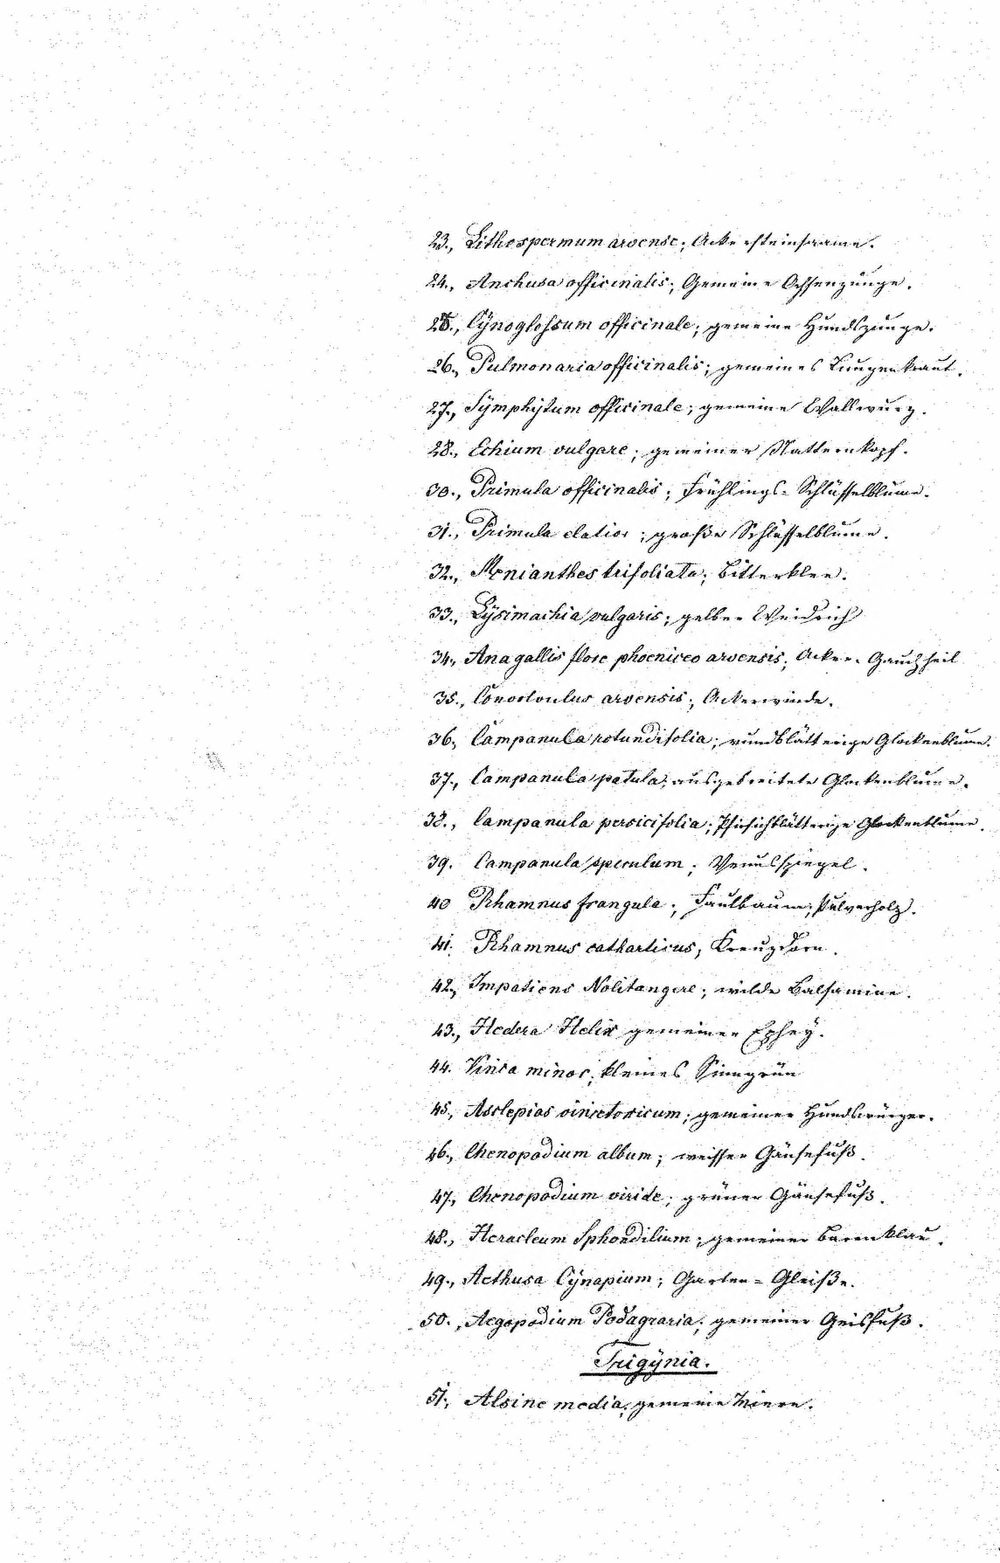 23., Lithospermum arvense; Ackersteinsaame.
24., Anchusa officinalis; Gemeine Ochsenzunge.
25., Cÿnoglossum officinale; gemeine Hundszunge.
26., Pulmonaria officinalis; gemeines Lungenkraut.
27., Sÿmphÿtum officinale; gemeine Wallwurz.
28., Echium vulgare; gemeiner Natternkopf.
30., Primula officinalis; Frühlings-Schlüsselblume.
31., Primula elatior; große Schlüsselblume.
32., Menianthes trifoliata; Bitterklee.
33., Lÿsimachia vulgaris; gelber Weidrich
34., Anagallis flore phoeniceo arvensis; Acker-Gauchheil
35., Convolvulus arvensis; Ackerwinde.
36., Campanula rotundifolia; rundblätterige Glockenblume.
37., Campanula patula; ausgebreitete Glockenblume.
38., Campanula persicifolia; Pfirsichblätterige Glockenblume.
39. Campanula speculum; Venusspiegel.
40 Rhamnus frangula; Faulbaum; Pulverholz.
41. Rhamnus catharticus; Kreuzdorn.
42., Impatiens Nolitangere; wilde Balsamine.
43., Hedera Helix gemeiner Epheÿ.
44. Vinca minor; kleines Sinngrün
45., Asclepias vincetoxicum; gemeiner Hundswürger.
46., Chenopodium album; weisser Gänsefuß.
47., Chenopodium viride; grüner Gänsefuß.
48., Heracleum Sphondilium; gemeiner Barenklau.
49., Aethusa Cÿnapium; Garten-Gleiße.
50., Aegopodium Podagraria; gemeiner Geisfuß.
Trigÿnia.
51., Alsine media; gemeine Miere.